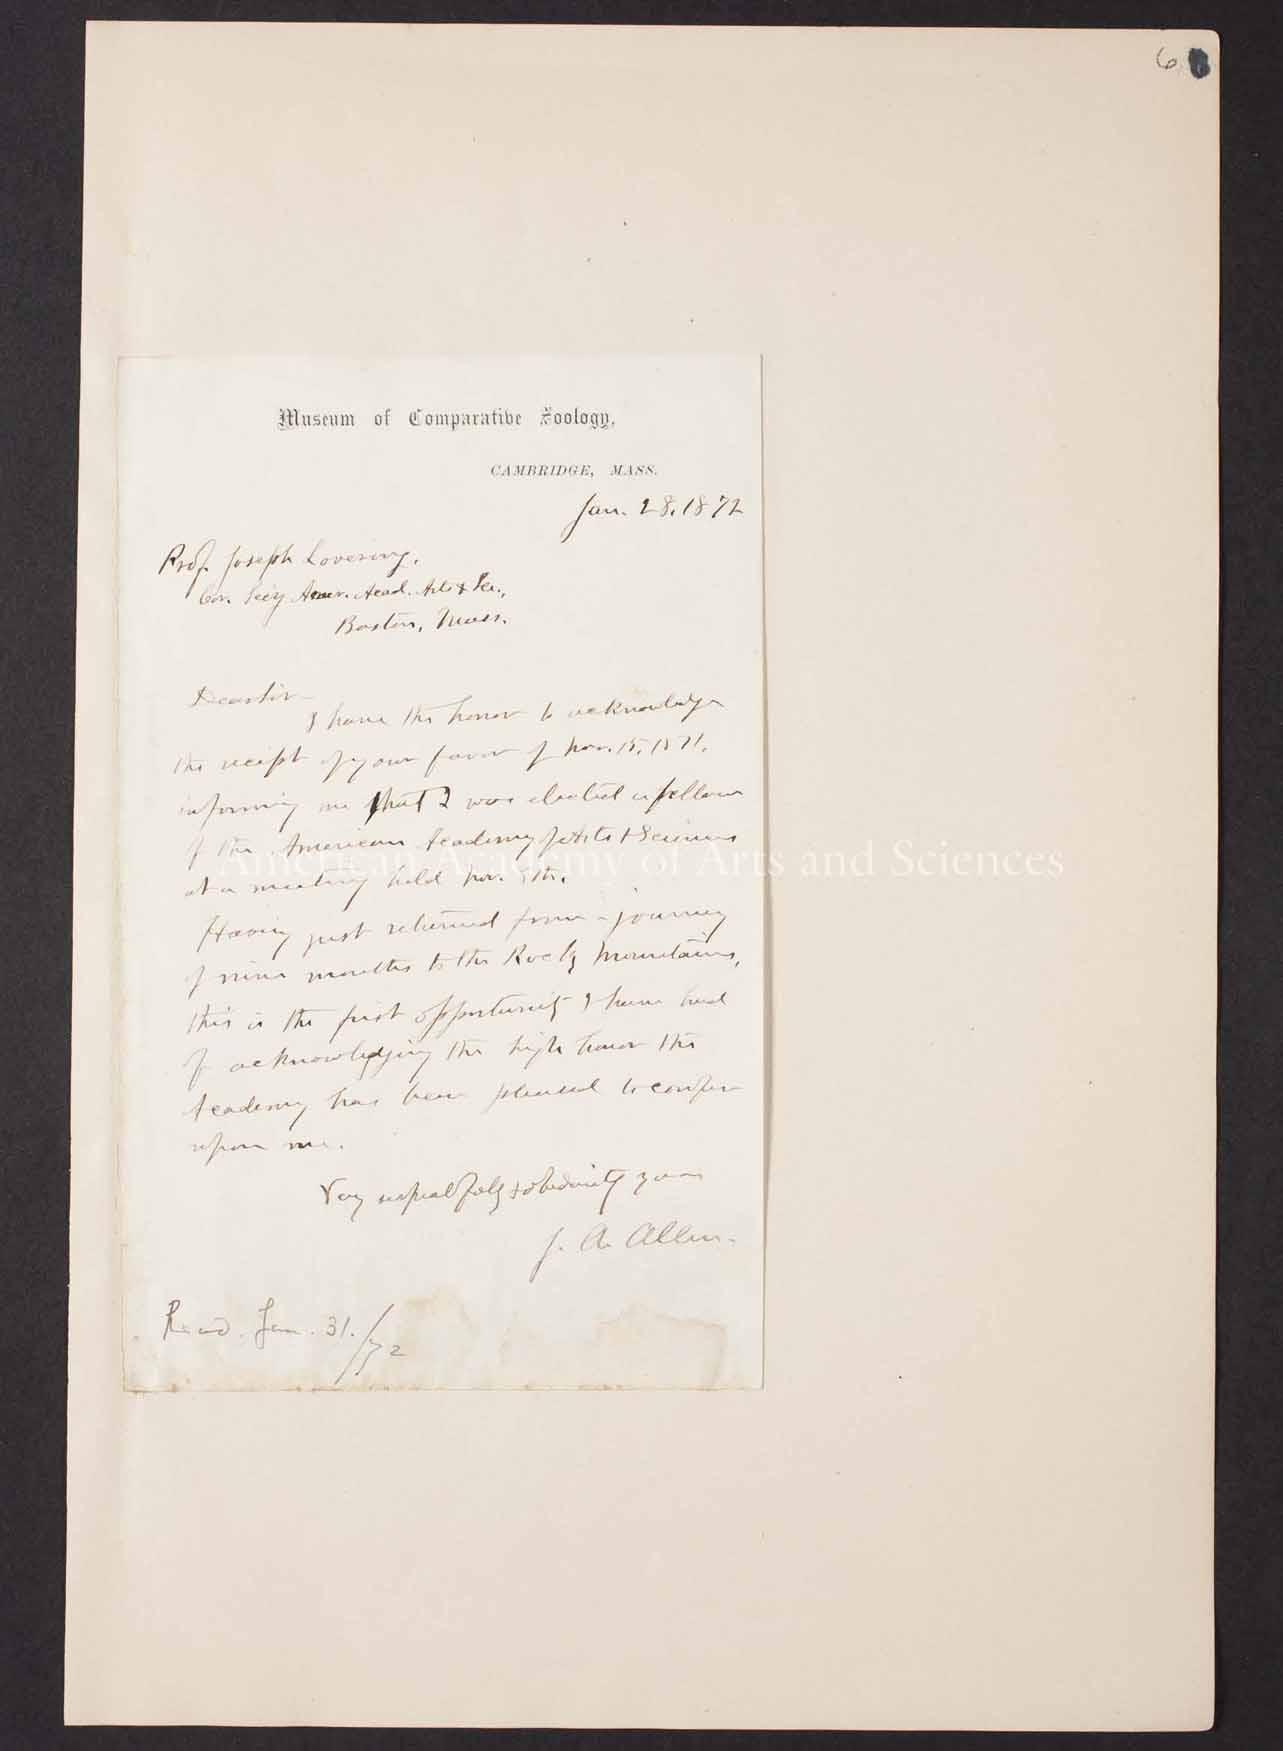 6
Museum of Comparative Zoology,
CAMBRIDGE, MASS.
Jan. 28, 1872
Prof. Joseph Lovering,
Cor. Sec'y Amer. Acad. Arts & Sci.,
Boston, Mass.
Dear Sir—
I have the honor to acknowledge
the receipt of your favor of Nov. 15, 1871,
informing me that I was elected a fellow
of the American Academy of Arts & Sciences
American Academy of Arts and Sciences
at a meeting held Nov. th.
Having just returned from a journey
of nine months to the Rocky Mountains,
this is the first opportunity I have had
of acknowledging the high honor the
Academy has been pleased to confer
upon me.
Very respectfully & obediently yours
J. A. Allen.
Read. Jan. 31./72